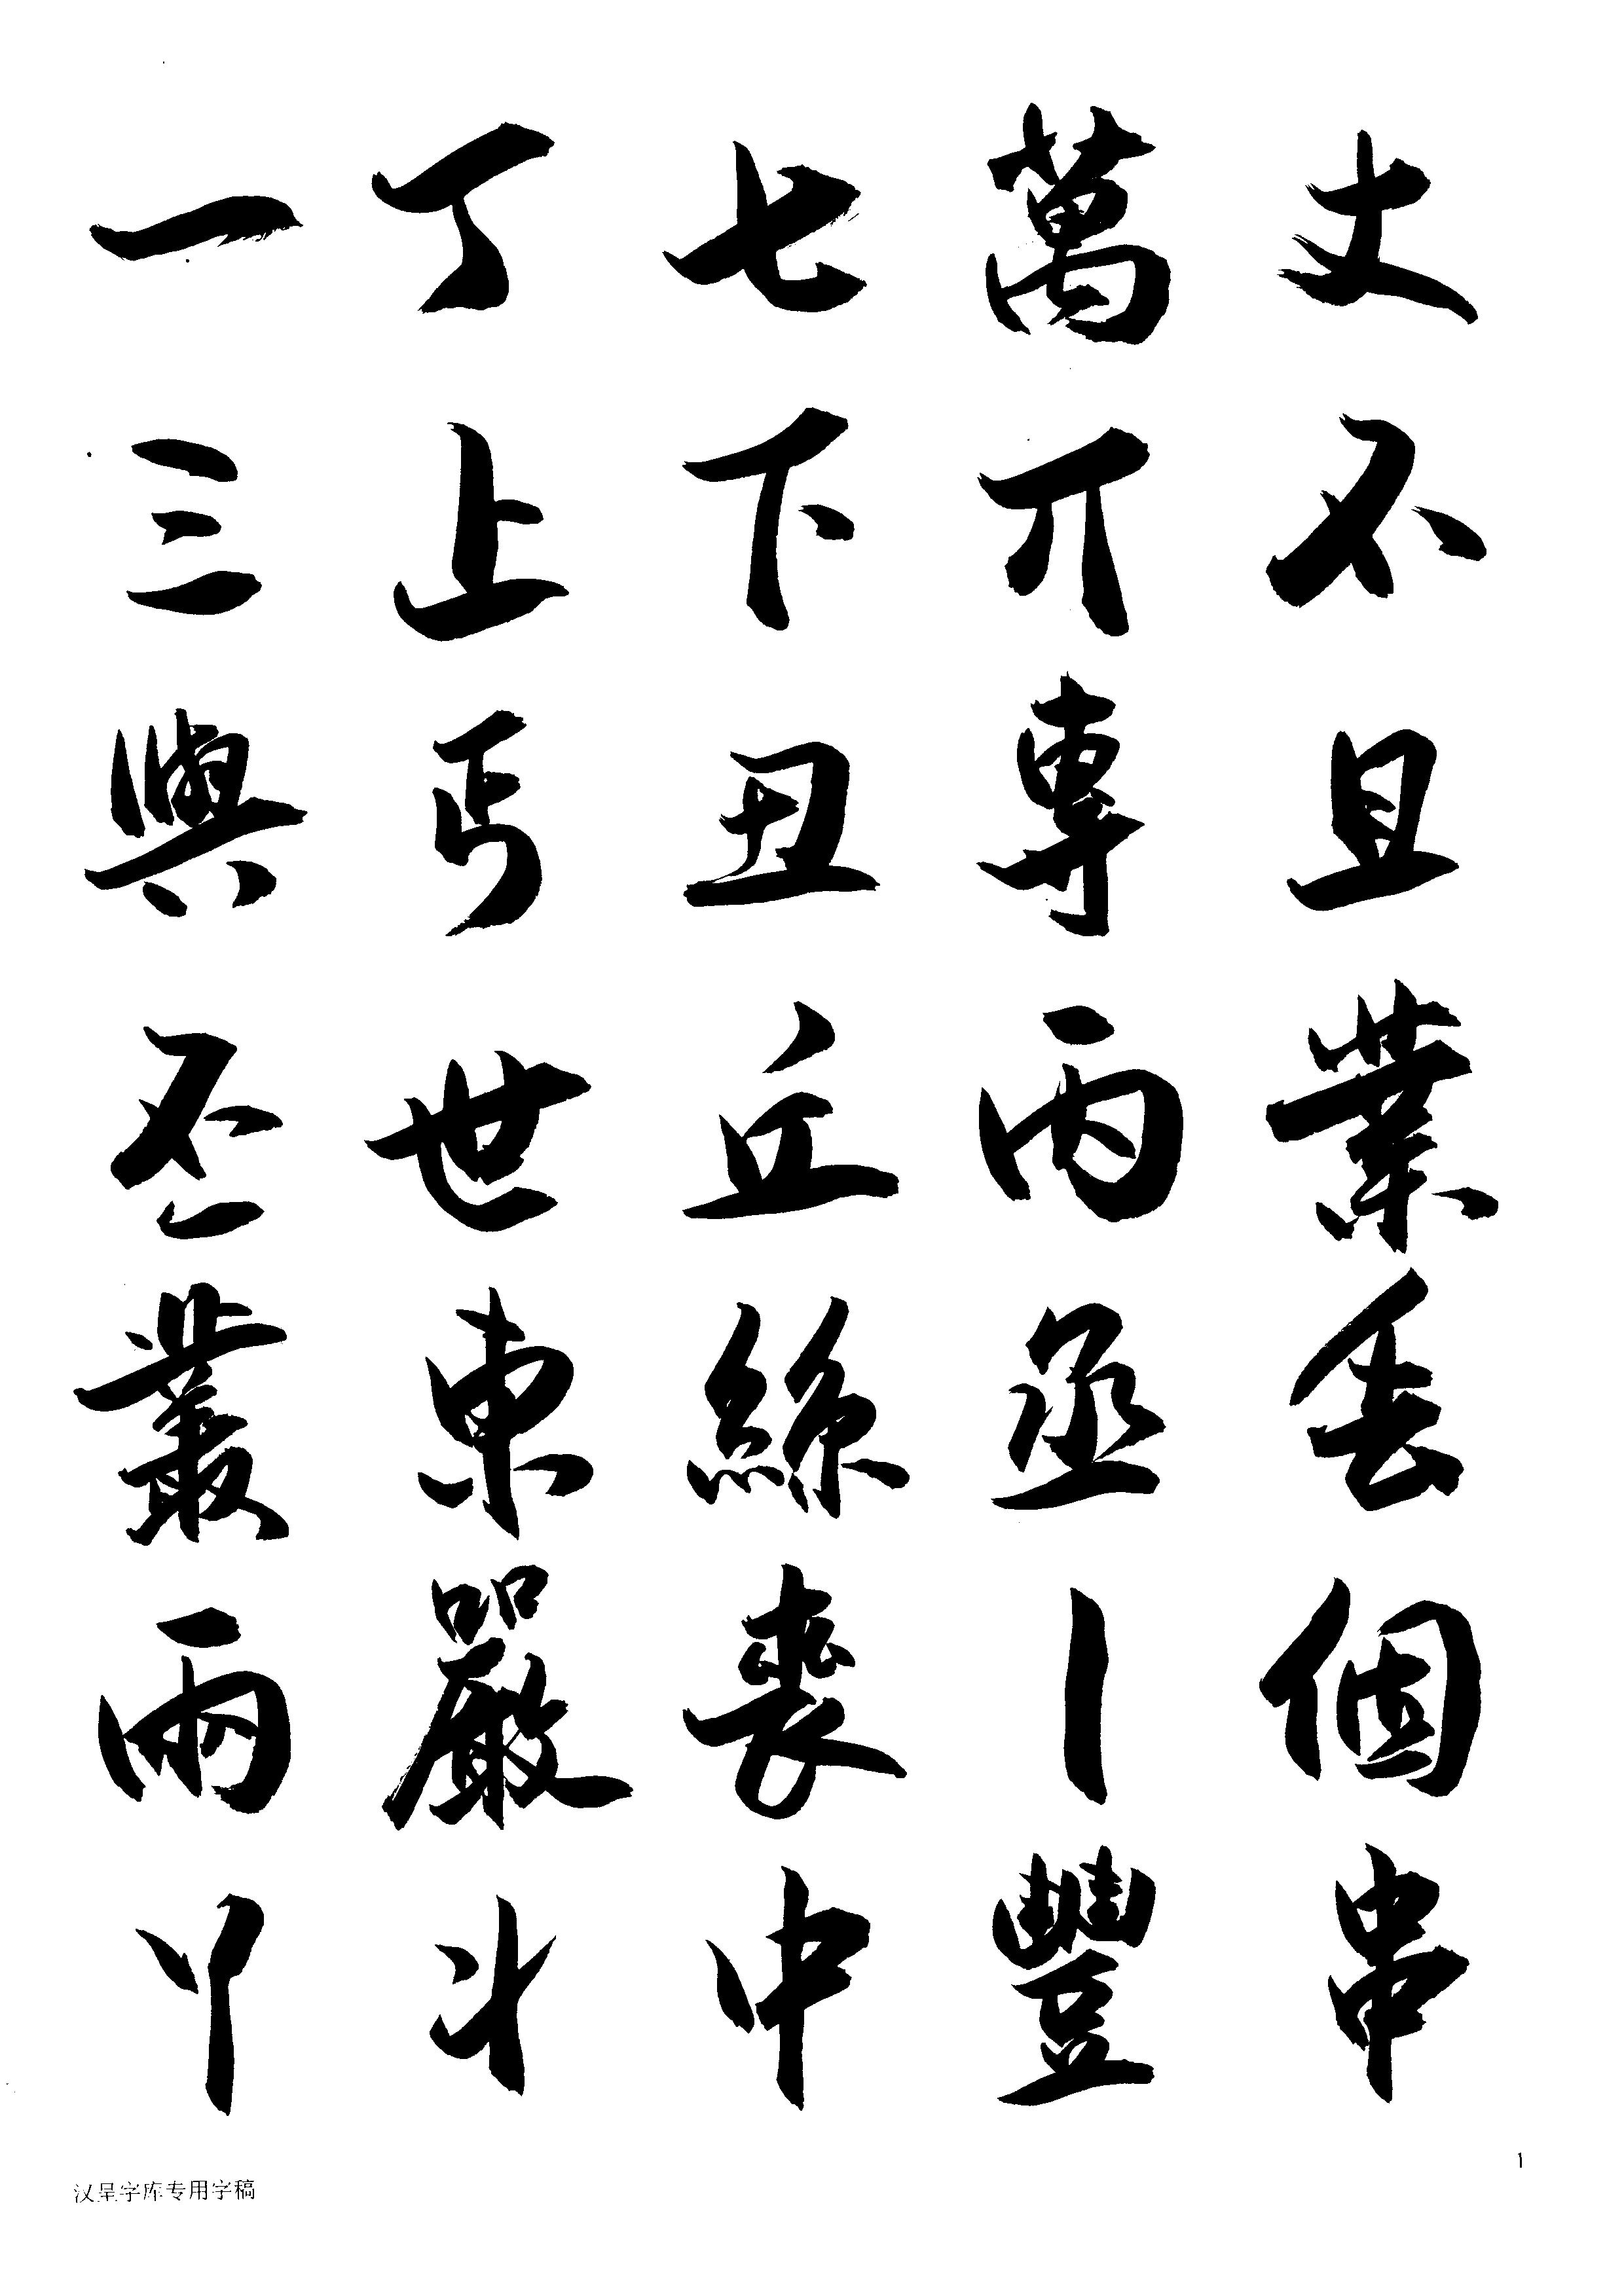 一丁七萬丈
三上下丌不
與丐丑專且
丕世丘丙業
叢東絲丞丟
兩嚴喪丨個
丫丬中豐串
1
汉呈字库专用字稿